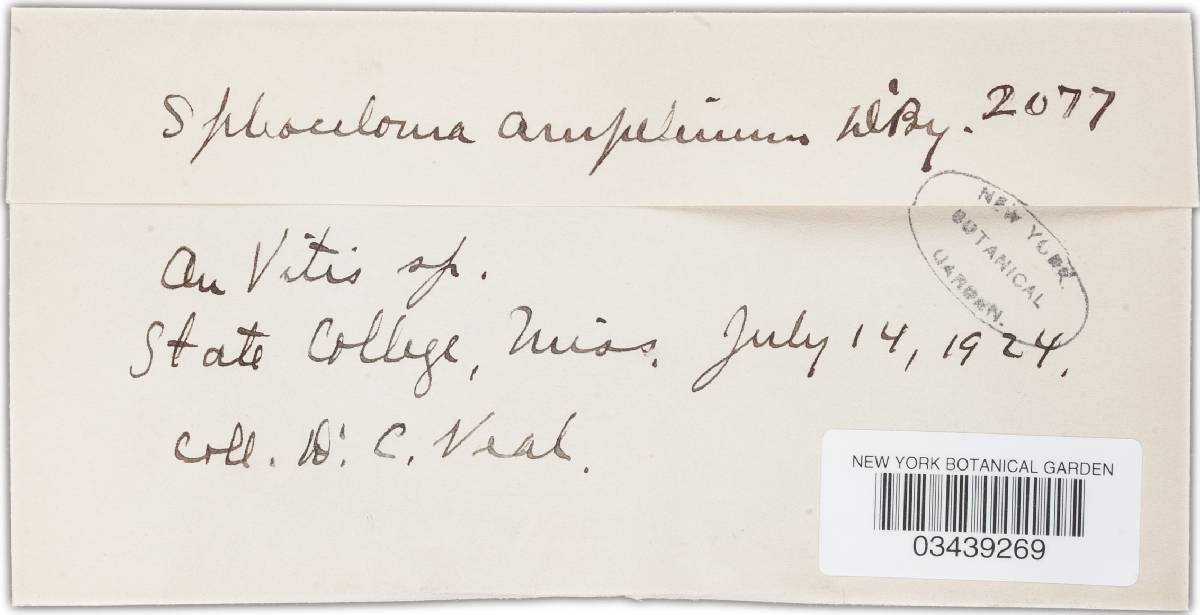 Sphaceloma ampelinum D'By. 2077
NEW YORK
BOTANICAL
GARDEN.
On Vitis sp.
State College, Miss. July 14, 1924.
Coll. D. C. Neal.
NEW YORK BOTANICAL GARDEN
03439269